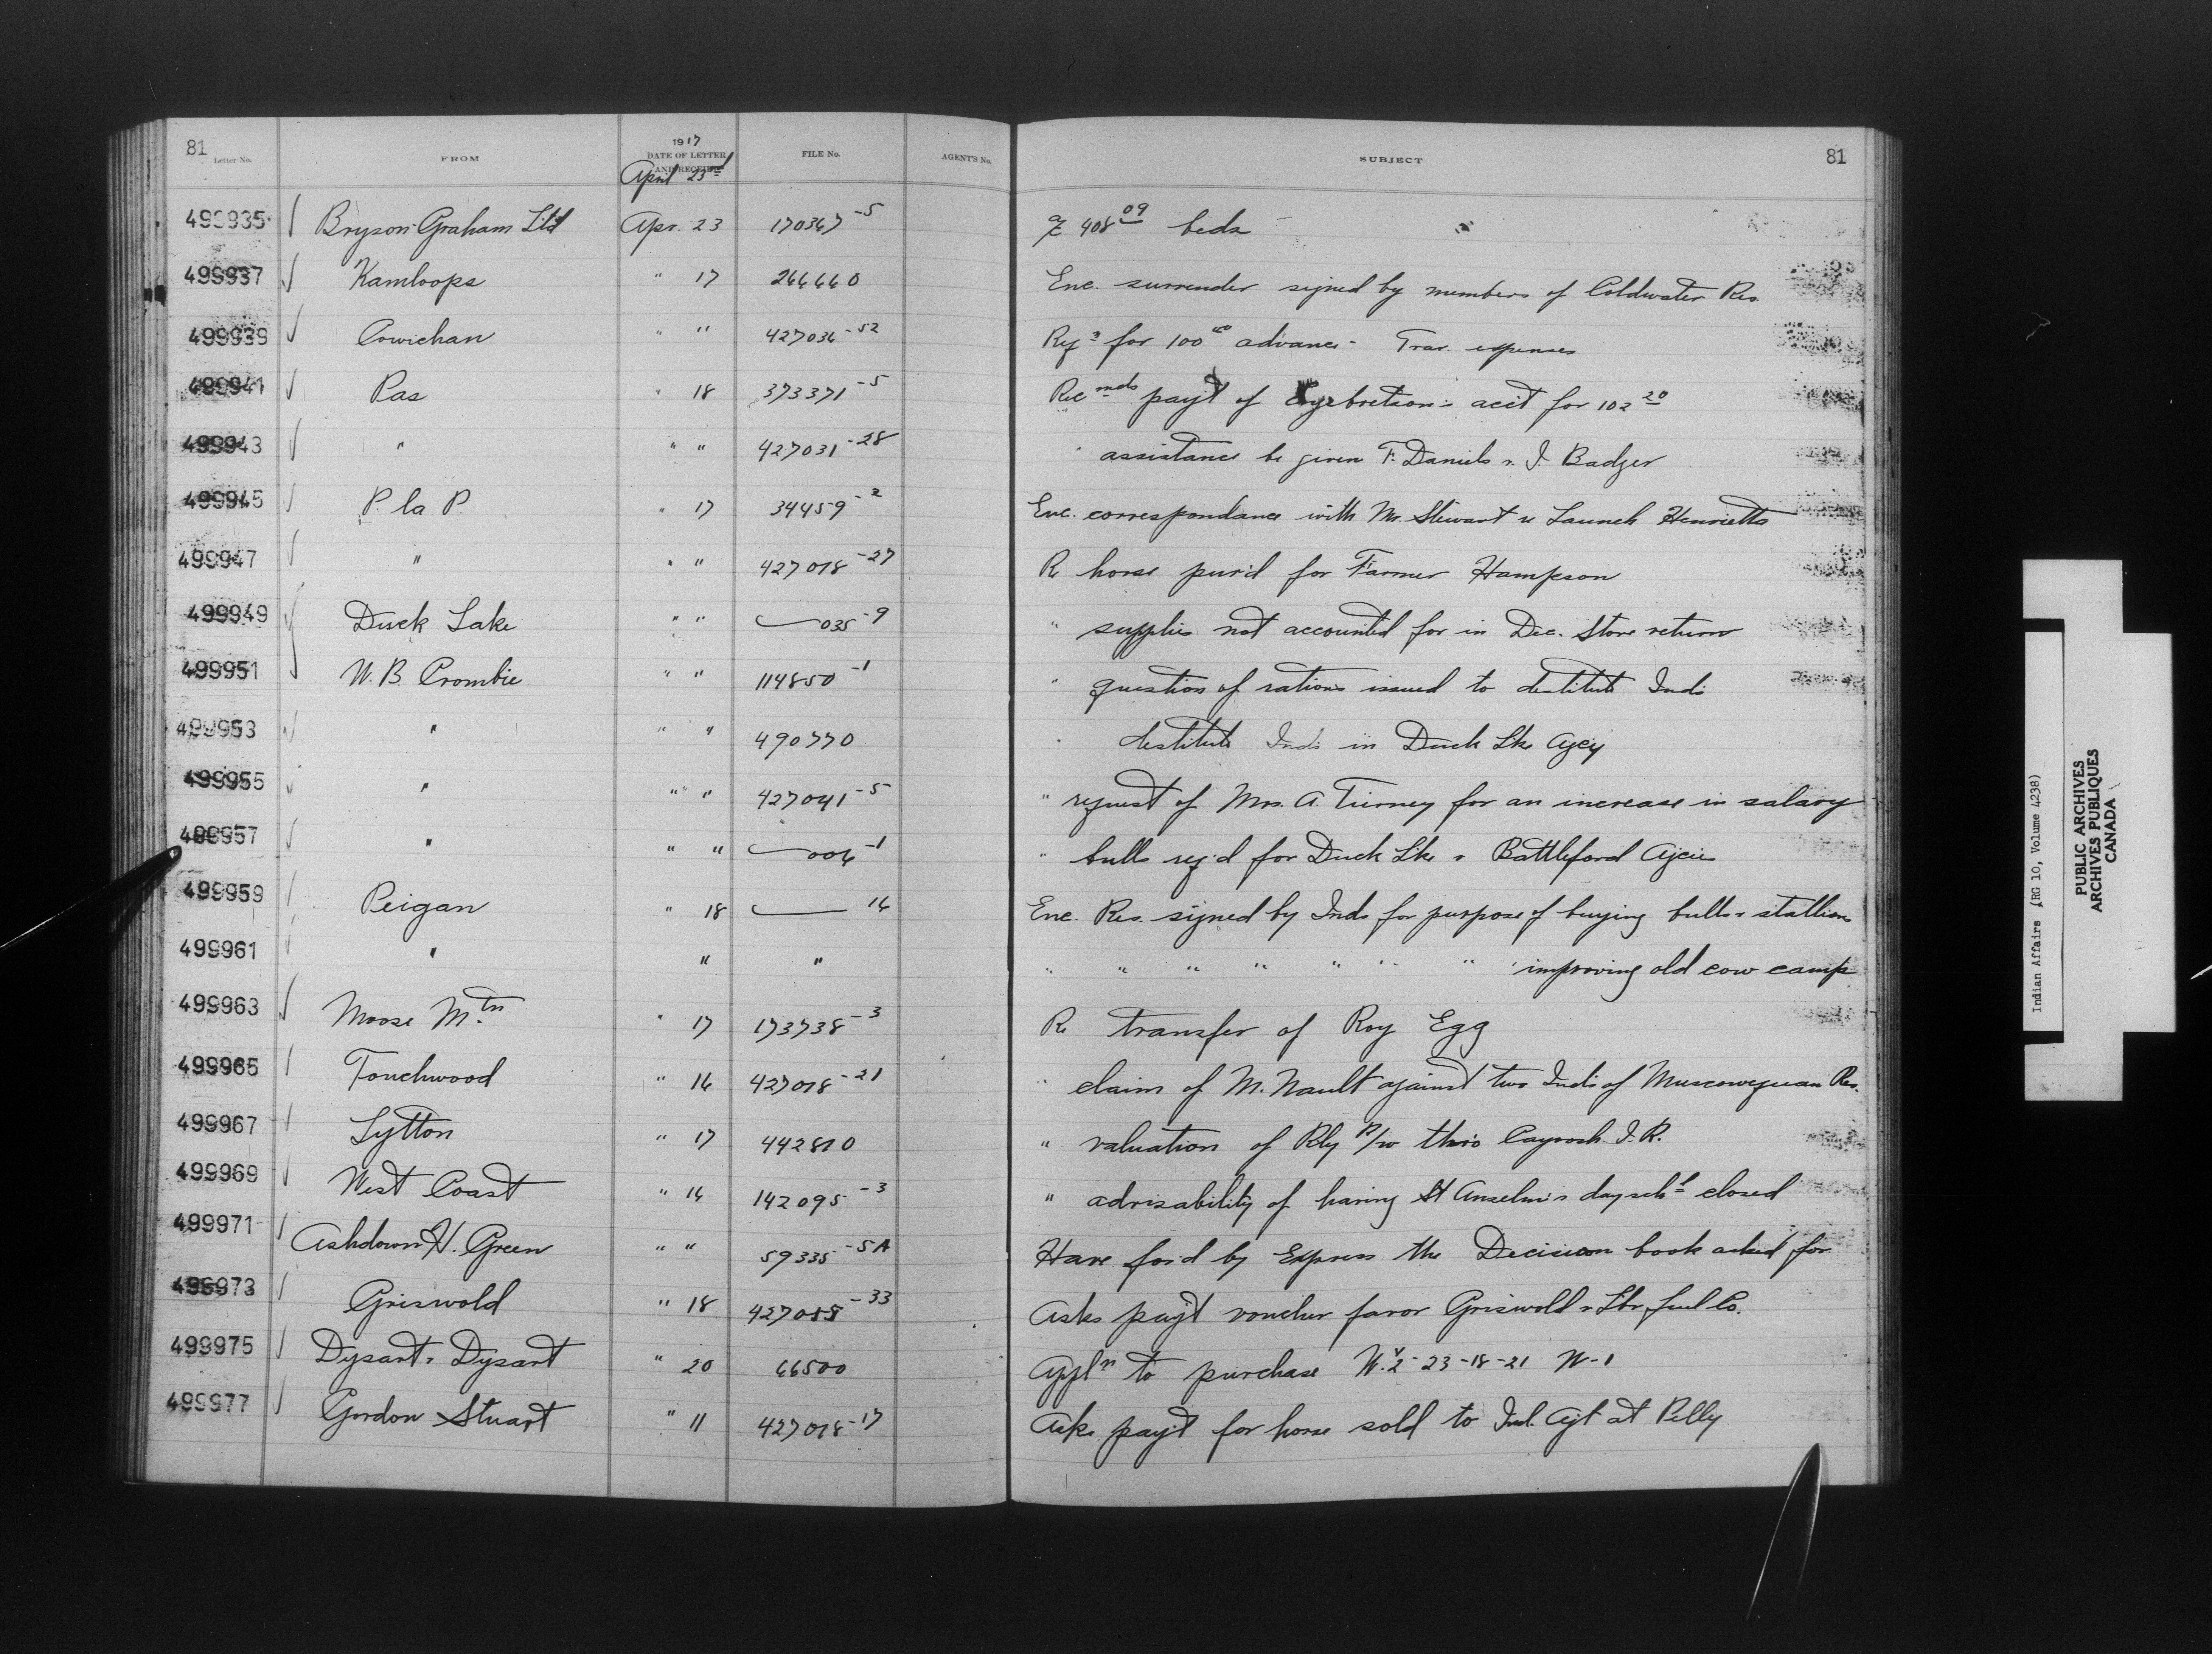 81 Letter No. FROM 1917 DATE OF LETTER AND RECEIPT FILE No. AGENT'S No. SUBJECT 81
April 23rd
499935 Bryson Graham Ltd Apr. 23 170367-5 408.09 beds
499937 Kamloops " 17 266660 Enc. surrender signed by members of Coldwater Res.
499939 Cowichan " " 427036-52 for 100.00 advance - Trav. expenses
499941 Pas " 18 373371-5 Recmds pay't of acct for 102.20
499943 " " " 427031-28 " assistance be given F. Daniels & J. Badger
499945 P. la P. " 17 34459-2 Enc. correspondance with Mr. Stewart re Launch Henrietta
499947 " " " 427018-27 Re horse pur'd for Farmer Hampson
499949 Duck Lake " " 035-9 " supplies not accounted for in Dec. Store return
499951 W. B. Crombie " " 114850-1 " question of rations issued to destitute Inds
499953 " " " 490770 " destitute Inds in Duck Lke Agcy
499955 " " " 427041-5 " request of Mrs. A. Tierney for an increase in salary
499957 " " " 006-1 " bulls req'd for Duck Lke & Battleford Agcie
499959 Peigan " 18 16 Enc. Res. signed by Inds for purpose of buying bulls & stallions
499961 " " " " " " " " " " improving old cow camp
499963 Moose Mtn " 17 173738-3 Re transfer of Roy Egg
499965 Touchwood " 16 427018-21 " claim of M. Nault against two Inds of Muscowequan Res.
499967 Lytton " 17 442810 " valuation of Rly R/w thro I.R.
499969 West Coast " 16 142095-3 " advisability of having St Anselm's day schl closed
499971 Ashdown H. Green " " 59335-5A Have for'd by Express the Decision book asked for
499973 Griswold " 18 427055-33 Asks pay't voucher favor Griswold Lbr. fuel Co.
499975 Dysart & Dysart " 20 66500 Appln to purchase W.½-23-18-21 W-1
499977 Gordon Stuart " 11 427018-17 Asks pay't for horse sold to Ind. Agt at Pelly
Indian Affairs (RG 10, Volume 4238)
PUBLIC ARCHIVES
ARCHIVES PUBLIQUES
CANADA